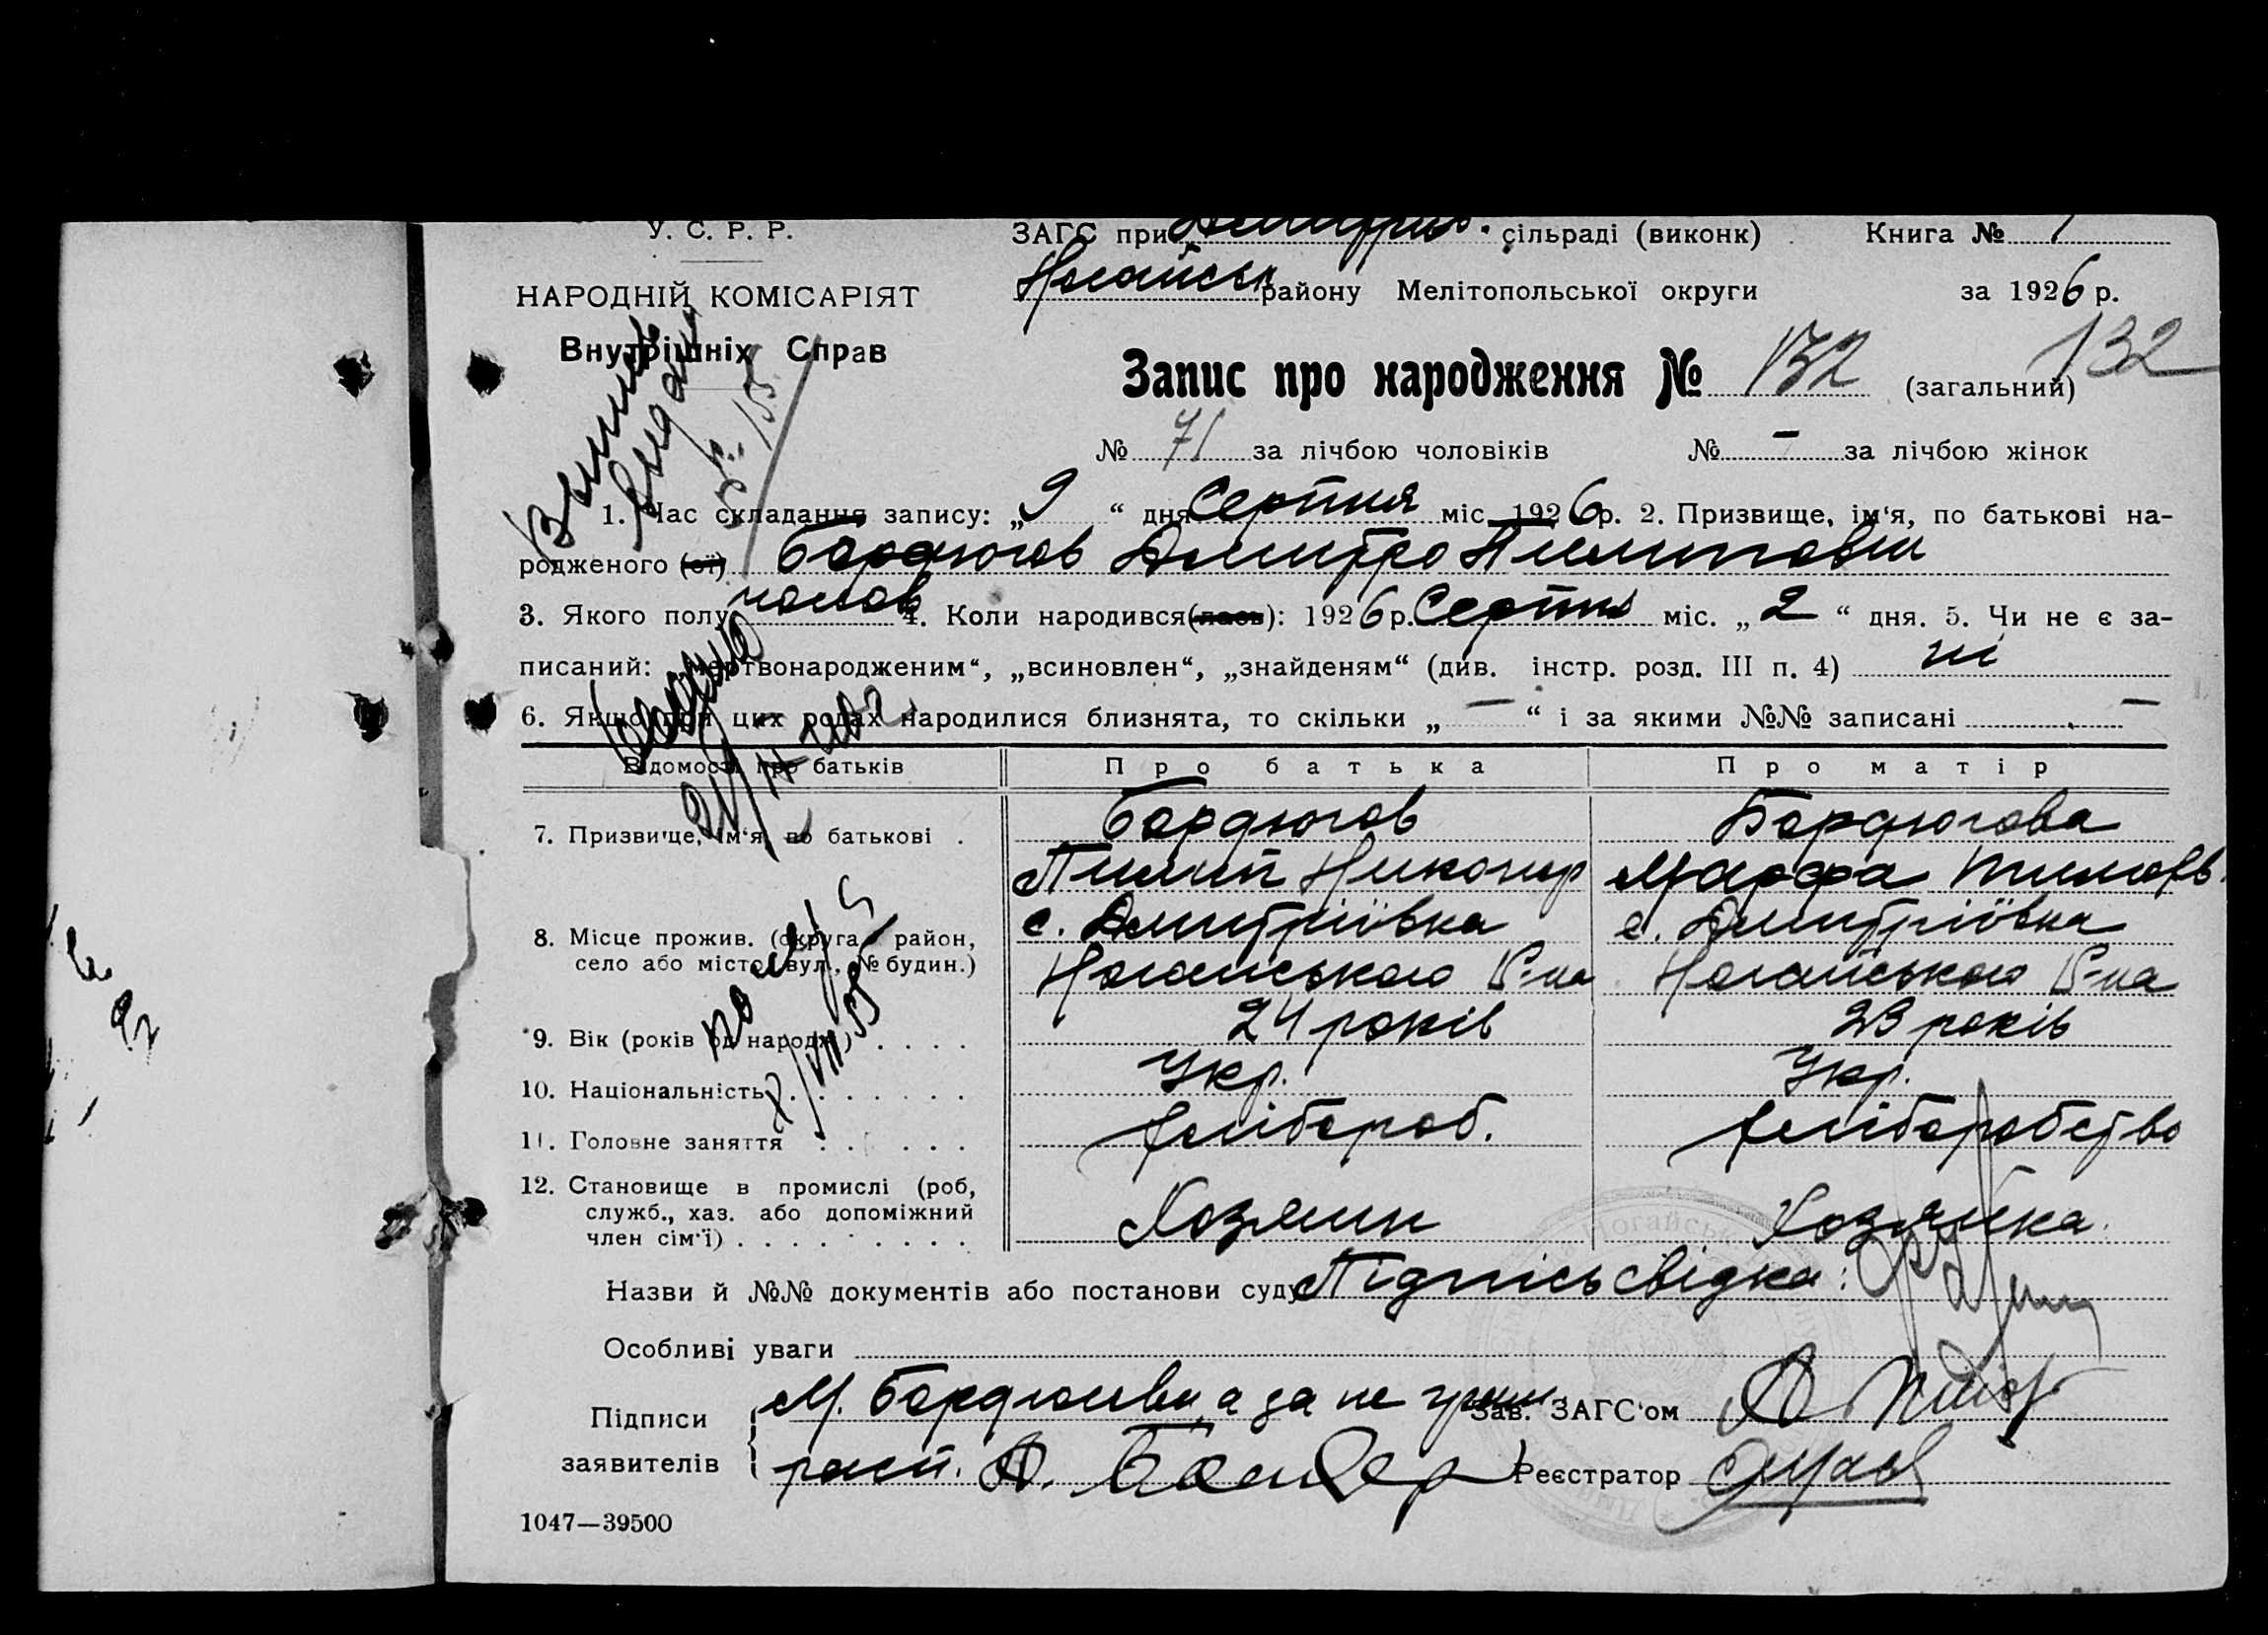 У. С. Р. Р.
НАРОДНІЙ КОМІСАРІЯТ
Внутрішніх Справ
ЗАГС при Дмитрив. сільраді (виконк) Книга № 1
Ногайськ району Мелітопольської округи за 1926 р.
Запис про народження № 132 (загальний) 132
№ 71 за лічбою чоловіків № – за лічбою жінок
1. Час складання запису: „9“ дня Серпня міс. 1926 р. 2. Призвище, ім‘я, по батькові на-
родженого (ої) Бордюгов Дмитро Пилипович
3. Якого полу чолов 4. Коли народився(лась): 1926 р. Серпня міс. „2“ дня. 5. Чи не є за-
писаний: „мертвонародженим“, „всиновлен“, „знайденям“ (див. інстр. розд. III п. 4) ні
6. Якщо при цих родах народилися близнята, то скільки „–“ і за якими №№ записані –
Відомості про батьків Про батька Про матір
7. Призвище, ім‘я, по батькові . Бордюгов Бордюгова
Пилип Никонор Марфа Тимофв.
8. Місце прожив. (округа, район, с. Дмитріївка с. Дмитріївка
село або місто, вул., № будин.) Ногайського Р-на Ногайського Р-на
9. Вік (років од народж.) . . . . 24 років 23 років
10. Національність . . . . . . . Укр. Укр.
11. Головне заняття . . . . . . хлібороб. хліборобство
12. Становище в промислі (роб,
служб., хаз. або допоміжний Хозяин Хозяйка.
член сім‘ї) . . . . . . . . .
Назви й №№ документів або постанови суду Підпісь свідка:
Особливі уваги
Підписи
заявителів
М. Бордюгова, а за не грам.
расп. А.
Зав. ЗАГС‘ом
Реєстратор
1047—39500